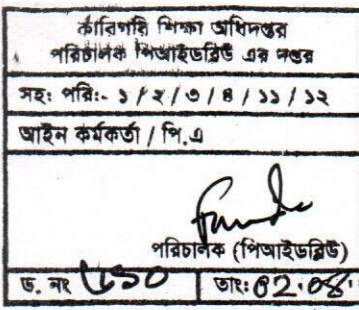 কারিগরি শিক্ষা অধিদপ্তর
পরিচালক পিআইডব্লিউ এর দপ্তর
সহ: পরি:- ১ / ২ / ৩ / ৪ / ১১ / ১২
আইন কর্মকর্তা / পি.এ
পরিচালক (পিআইডব্লিউ)
ড. নং ৬১০ তাং: ০২.০৪.